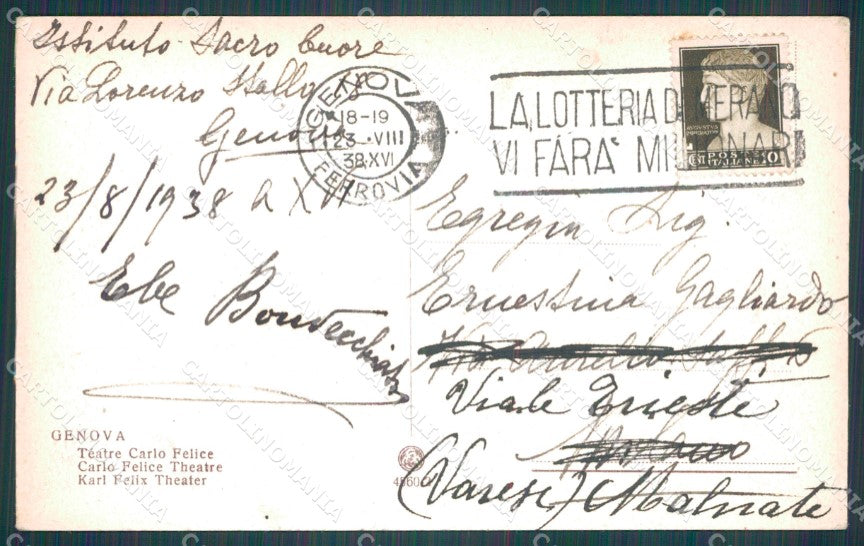 Istituto Sacro Cuore
Via Lorenzo Stallo
Genova
23/8/1938 a XVI
Ebe
GENOVA
Téatre Carlo Felice
Carlo Felice Theatre
Karl Felix Theater
GENOVA
18-19
23 VIII
38.XVI
FERROVIA
LA LOTTERIA DI MERANO
VI FARÀ MILIONARI
POSTE
ITALIANE
Sig.
Ernestina Gagliardo
Viale Trieste
(Varese) Malnate
CARTOLINOMANIA